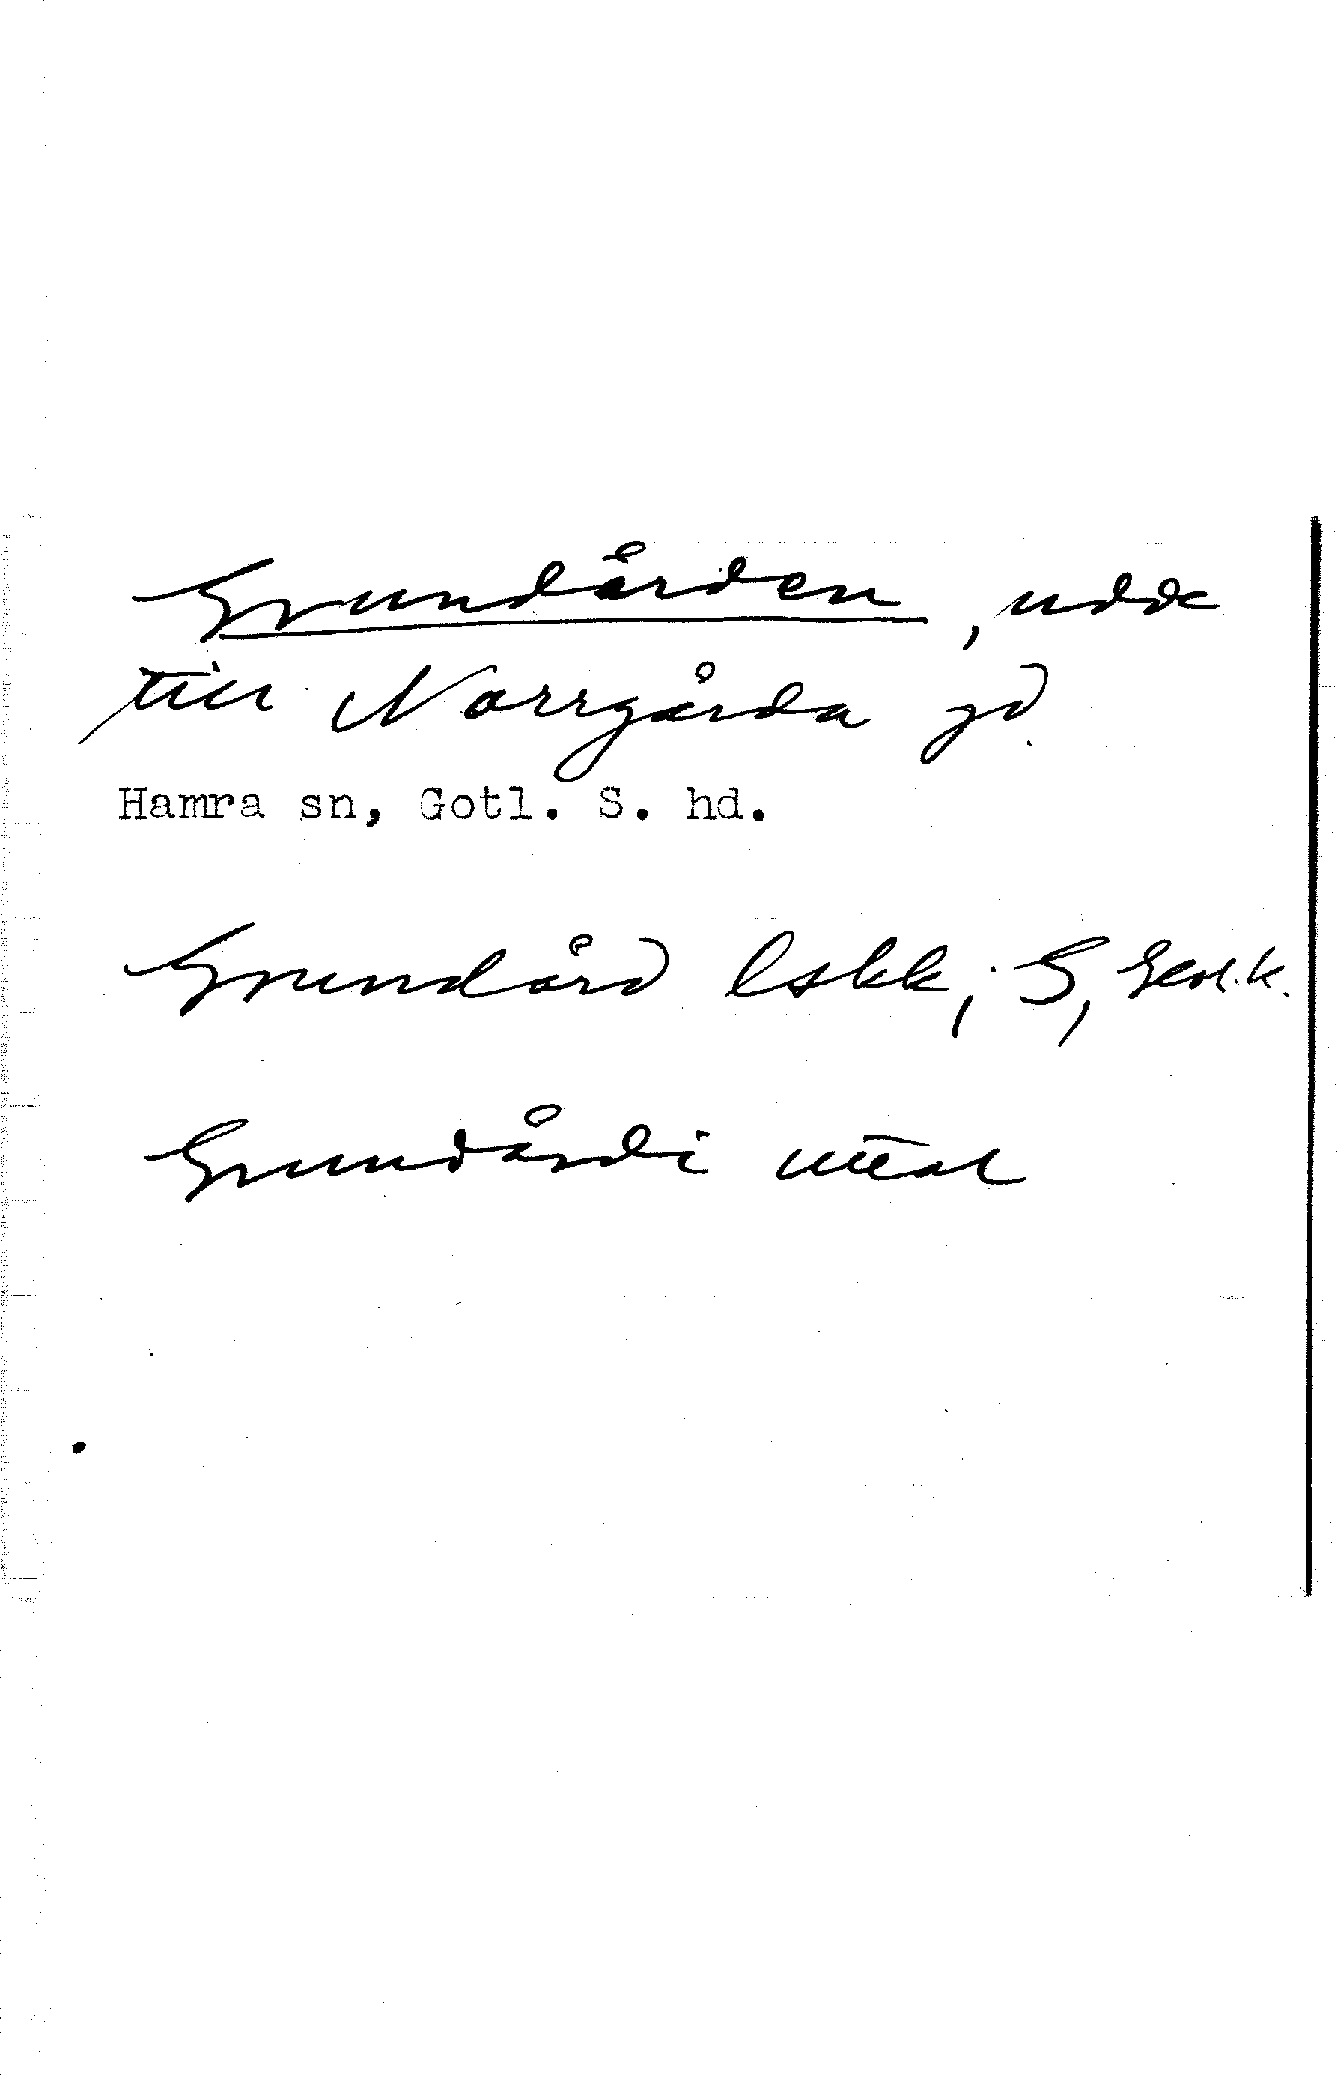 Grundården, udde
till Norrgårda gd
Hamra sn, Gotl. S. hd.
Grundård lskk; S, Geol.k.
Grundårdi uttal